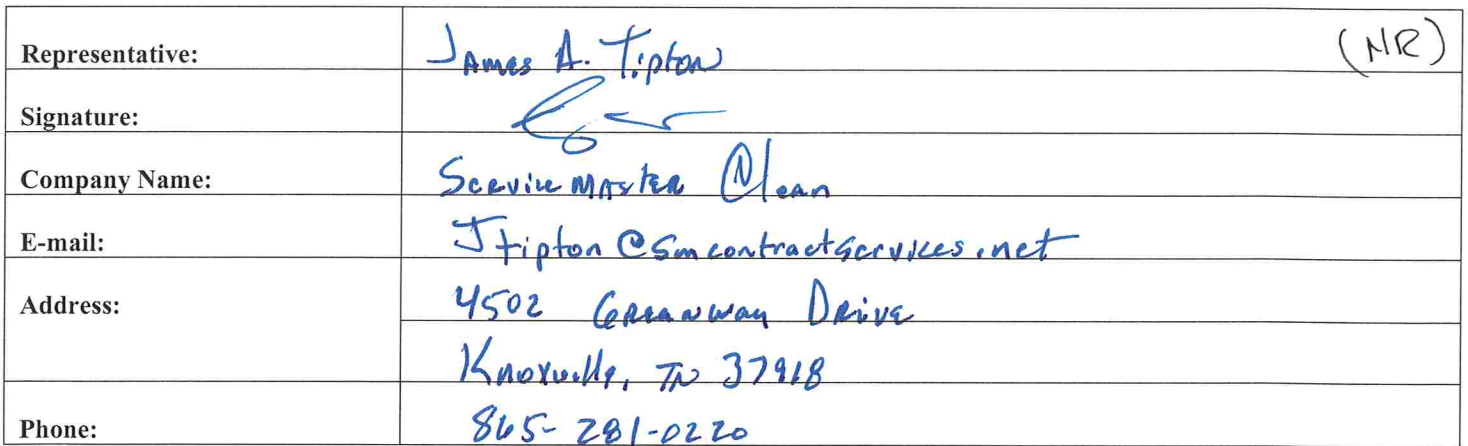 Representative: James A. Tipton (NR)
Signature:
Company Name: Service Master Clean
E-mail: Jtipton@smcontractservices.net
Address: 4502 Greenway Drive
Knoxville, TN 37918
Phone: 865-281-0220